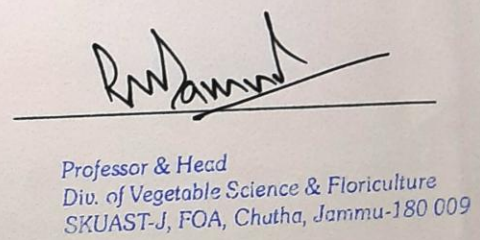 Professor & Head
Div. of Vegetable Science & Floriculture
SKUAST-J, FOA, Chatha, Jammu-180 009